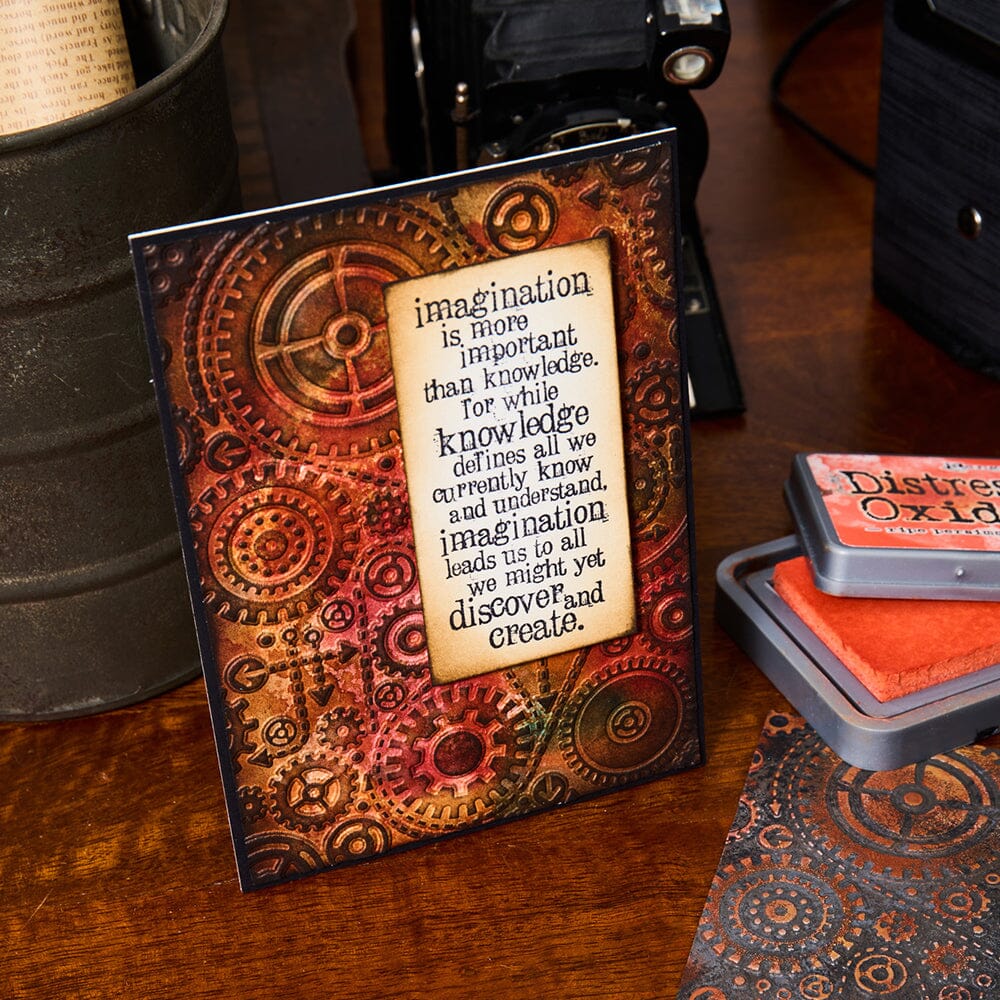 imagination
is more
important
than knowledge.
for while
knowledge
defines all we
currently know
and understand,
imagination
leads us to all
we might yet
discover and
create.
Distres
Oxid